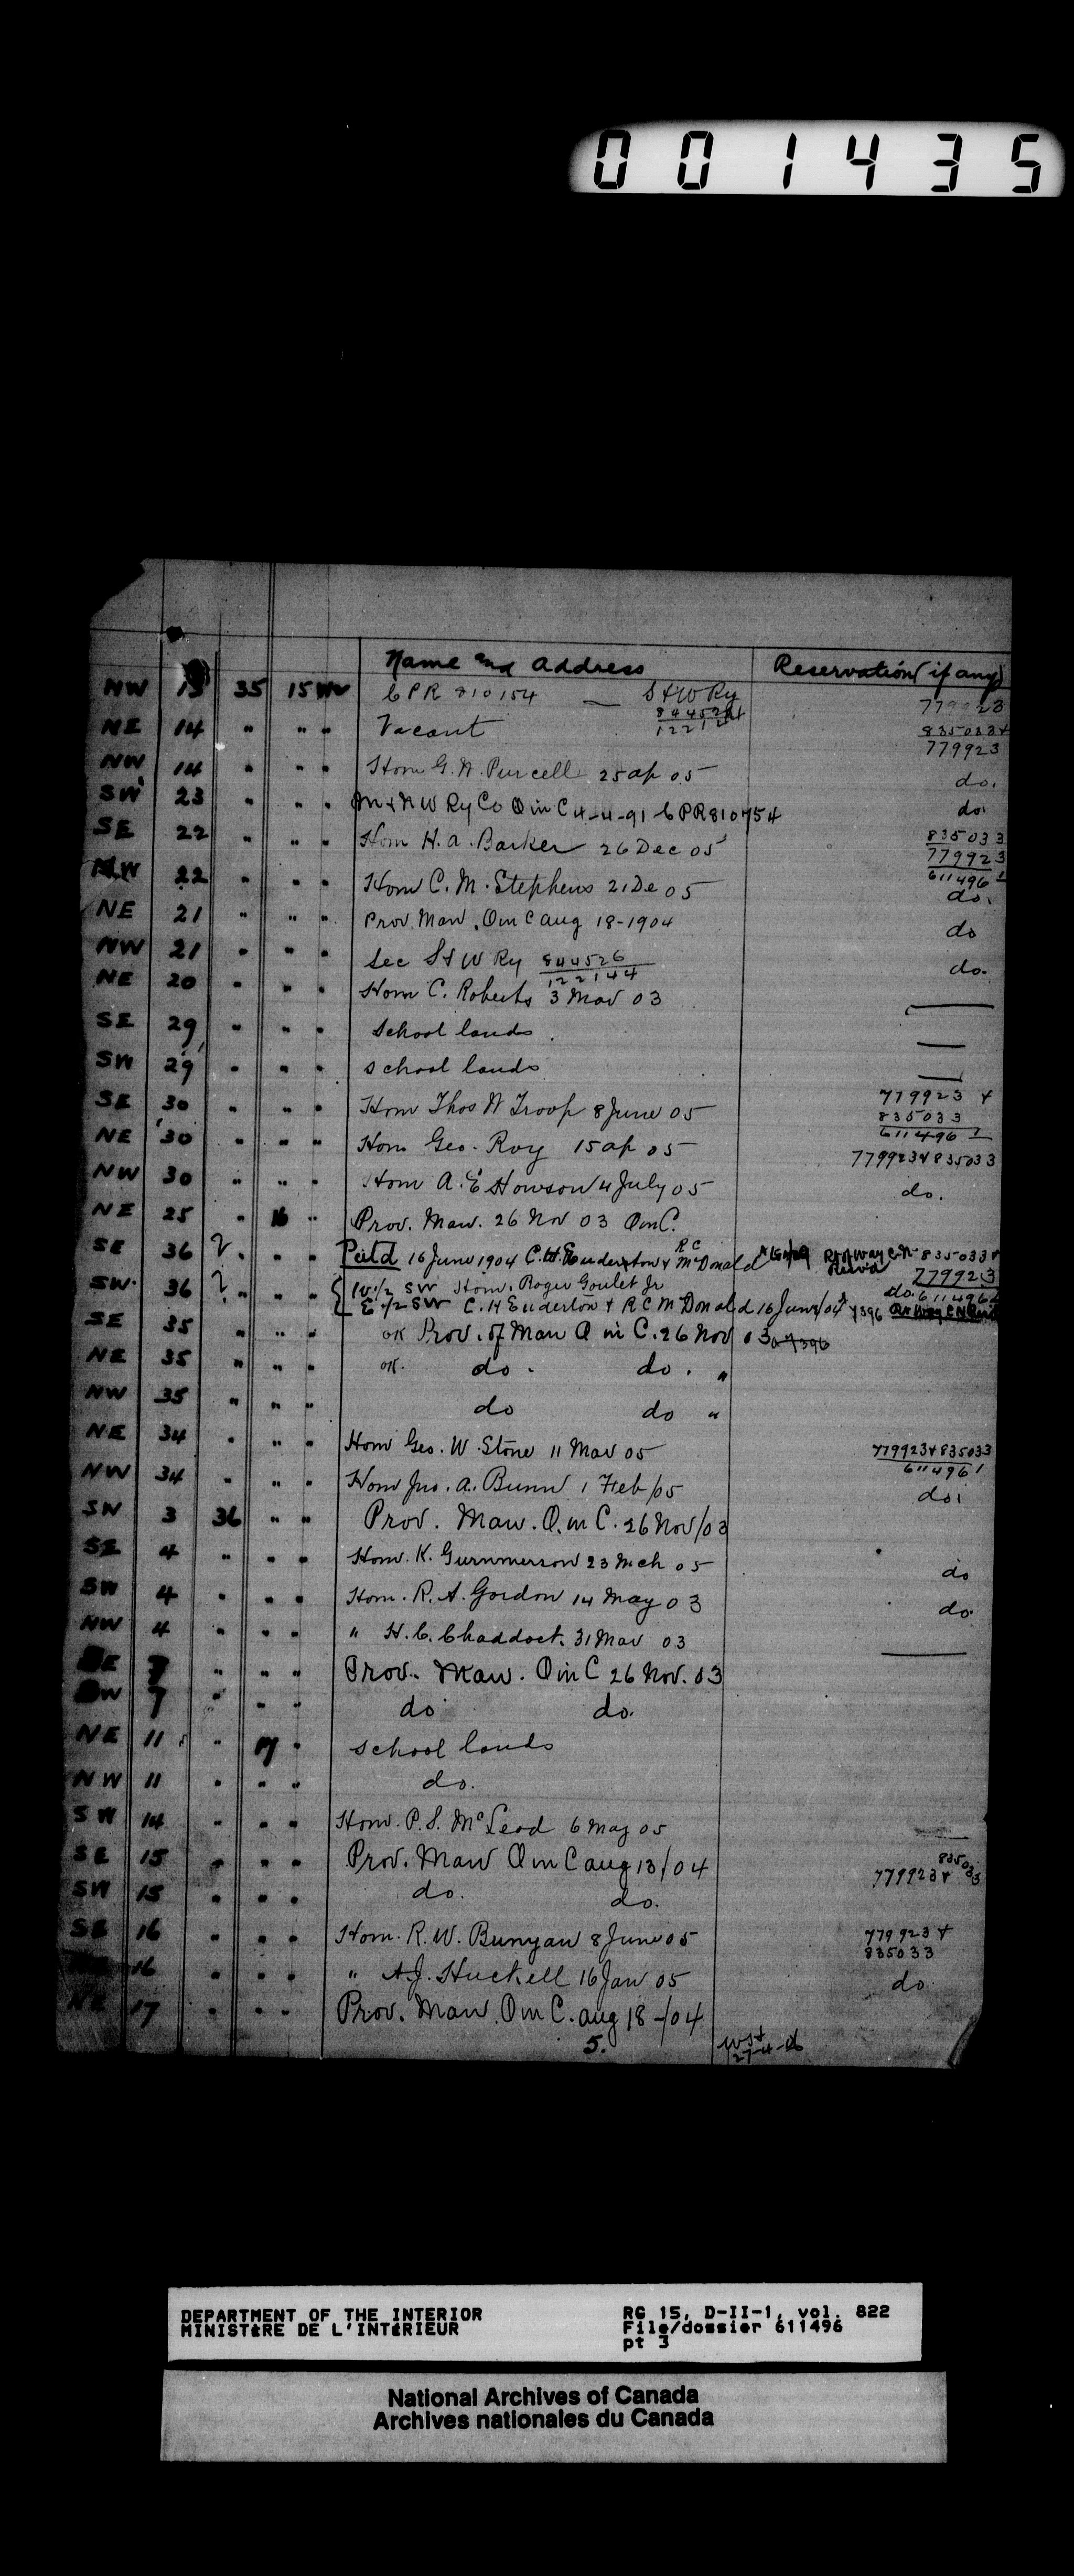 001435
Name and Address Reservation (if any)
NW 13 35 15 W CPR 810154 — S & W Ry 779923
844526
NE 14 " " " Vacant 835033 &
779923
NW 14 " " " Hom G. W. Purcell 25 ap 05 do.
SW 23 " " " M & N W Ry Co O in C 4-4-91 CPR 810154 do.
SE 22 " " " Hom H. A. Barker 26 Dec 05 835033
779923
611496
NW 22 " " " Hom C. M. Stephens 21 De 05 do.
NE 21 " " " Prov. Man. O in C Aug 18-1904 do
NW 21 " " " Sec St W Ry 844526 do.
122144
NE 20 " " " Hom C. Roberts 3 Mar 03 —
SE 29 " " " School lands —
SW 29 " " " school lands —
SE 30 " " " Hom Thos W Troop 8 June 05 779923 &
835033
611496
NE 30 " " " Hom Geo. Roy 15 ap 05 779923 & 835033
NW 30 " " " Hom A. E Howson 4 July 05 do.
NE 25 " 16 " Prov. Man. 26 Nov 03 O in C.
SE 36 2 " " " Pat'd 16 June 1904 C. H. Enderton & R C McDonald Rt of Way C.N. 835033 &
Reserv'd 779923
SW 36 2 " " " W. 1/2 SW Hom. Roger Goulet Jr do. 611496
E. 1/2 SW C. H Enderton & R C McDonald 16 June/04
SE 35 " " " OK Prov. of Man O in C. 26 Nov 03
NE 35 " " " OK. do. do. "
NW 35 " " " do do "
NE 34 " " " Hom Geo. W. Stone 11 Mar 05 779923 & 835033
611496
NW 34 " " " Hom Jno. A. Bunn 1 Feb/05 do.
SW 3 36 " " Prov. Man. O. in C. 26 Nov/03
SE 4 " " " Hom. K. Gurnmerson 23 Mch 05 do
SW 4 " " " Hom. R. A. Gordon 14 May 03 do.
NW 4 " " " " H. C. Chaddock 31 Mar 03 —
7 " " " Prov. Man. O in C 26 Nov. 03
7 " " " do do.
NE 11 " 17 " School lands
NW 11 " " " do.
SW 14 " " " Hom. P. S. McLeod 6 May 05
SE 15 " " " Prov. Man O in C Aug 13/04 779923 & 835033
SW 15 " " " do. do.
SE 16 " " " Hom. R. W. Bunyan 8 June 05 779923 &
835033
16 " " " " A. J. Huckell 16 Jan 05 do
NE 17 " " " Prov. Man. O in C. Aug 18-/04
5.
DEPARTMENT OF THE INTERIOR RG 15, D-II-1, vol. 822
MINISTÈRE DE L'INTÉRIEUR File/dossier 611496
pt 3
National Archives of Canada
Archives nationales du Canada